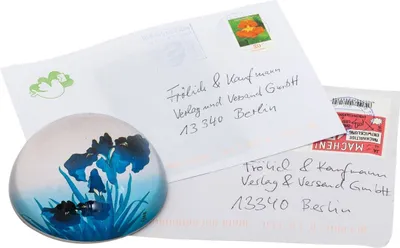 Frölich & Kaufmann
Verlag und Versand GmbH
13340 Berlin
MACHEN!
Frölich & Kaufmann
Verlag & Versand GmbH
13340 Berlin